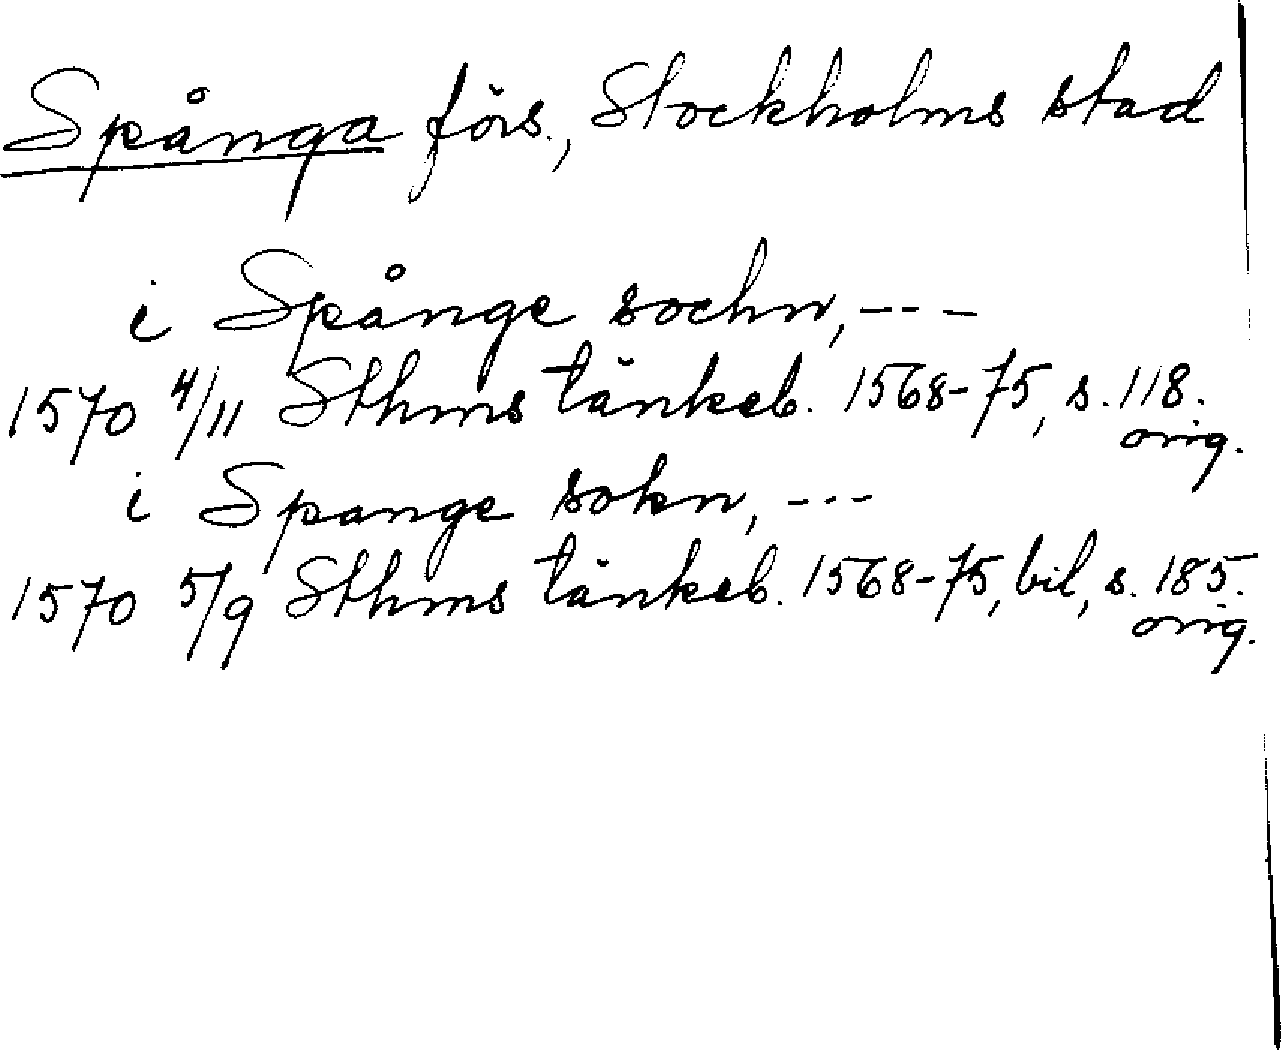 Spånga förs., Stockholms stad
i Spånge sochn, ---
1570 4/11 Sthms tänkeb. 1568-75, s. 118.
orig.
i Spange sokn, ---
1570 5/9 Sthms tänkeb. 1568-75, bil, s. 185.
orig.